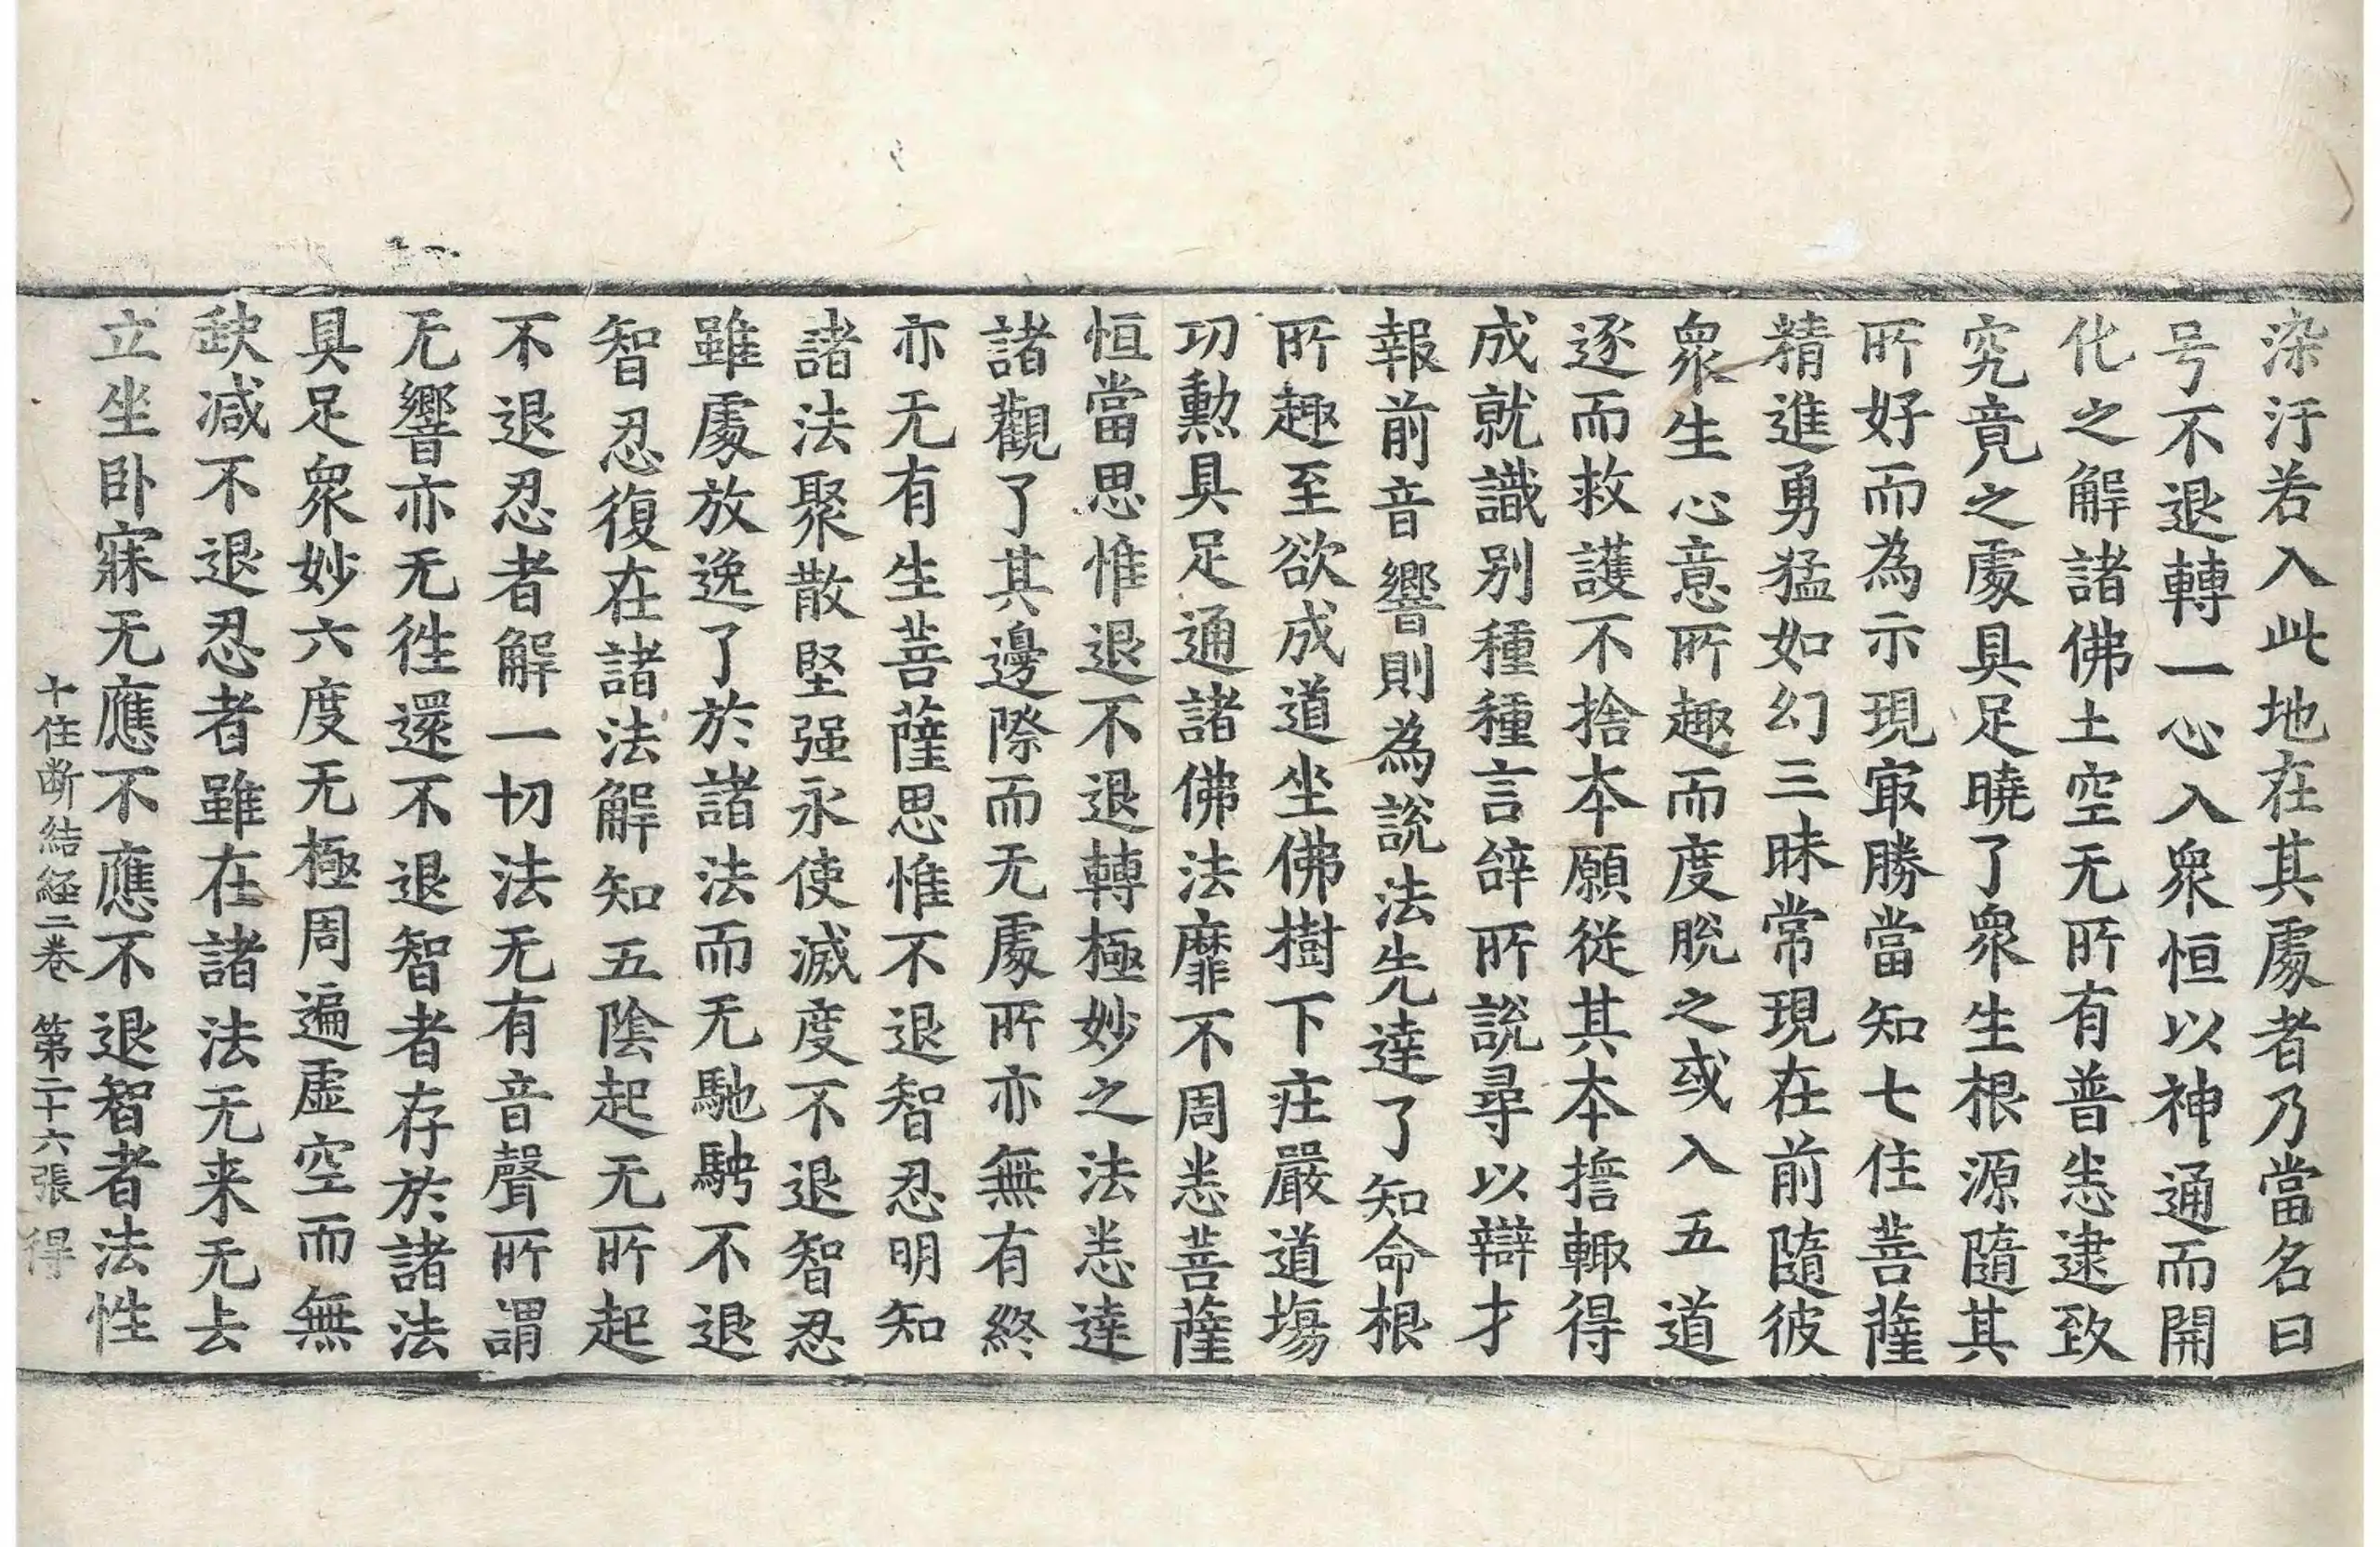 染汙若入此地在其處者乃當名曰
号不退轉一心入衆恒以神通而開
化之解諸佛土空无所有普悉逮致
究竟之處具足曉了衆生根源隨其
所好而為示現㝡勝當知七住菩薩
精進勇猛如幻三昧常現在前隨彼
衆生心意所趣而度脫之或入五道
逐而救護不捨本願從其本擔輙得
成就識別種種言辝所說尋以辯才
報前音響則為說法先達了知命根
所趣至欲成道坐佛樹下庄嚴道塲
功勳具足通諸佛法靡不周悉菩薩
恒當思惟退不退轉極妙之法悉達
諸觀了其邊際而无處所亦無有終
亦无有生菩薩思惟不退智忍明知
諸法聚散堅强永使滅度不退智忍
雖處放逸了於諸法而无馳騁不退
智忍復在諸法解知五陰起无所起
不退忍者解一切法无有音聲所謂
无響亦无徃還不退智者存於諸法
具足衆妙六度无極周遍虛空而無
㪇減不退忍者雖在諸法无来无去
立坐卧寐无應不應不退智者法性
十住断結經二卷 第二十六張 得